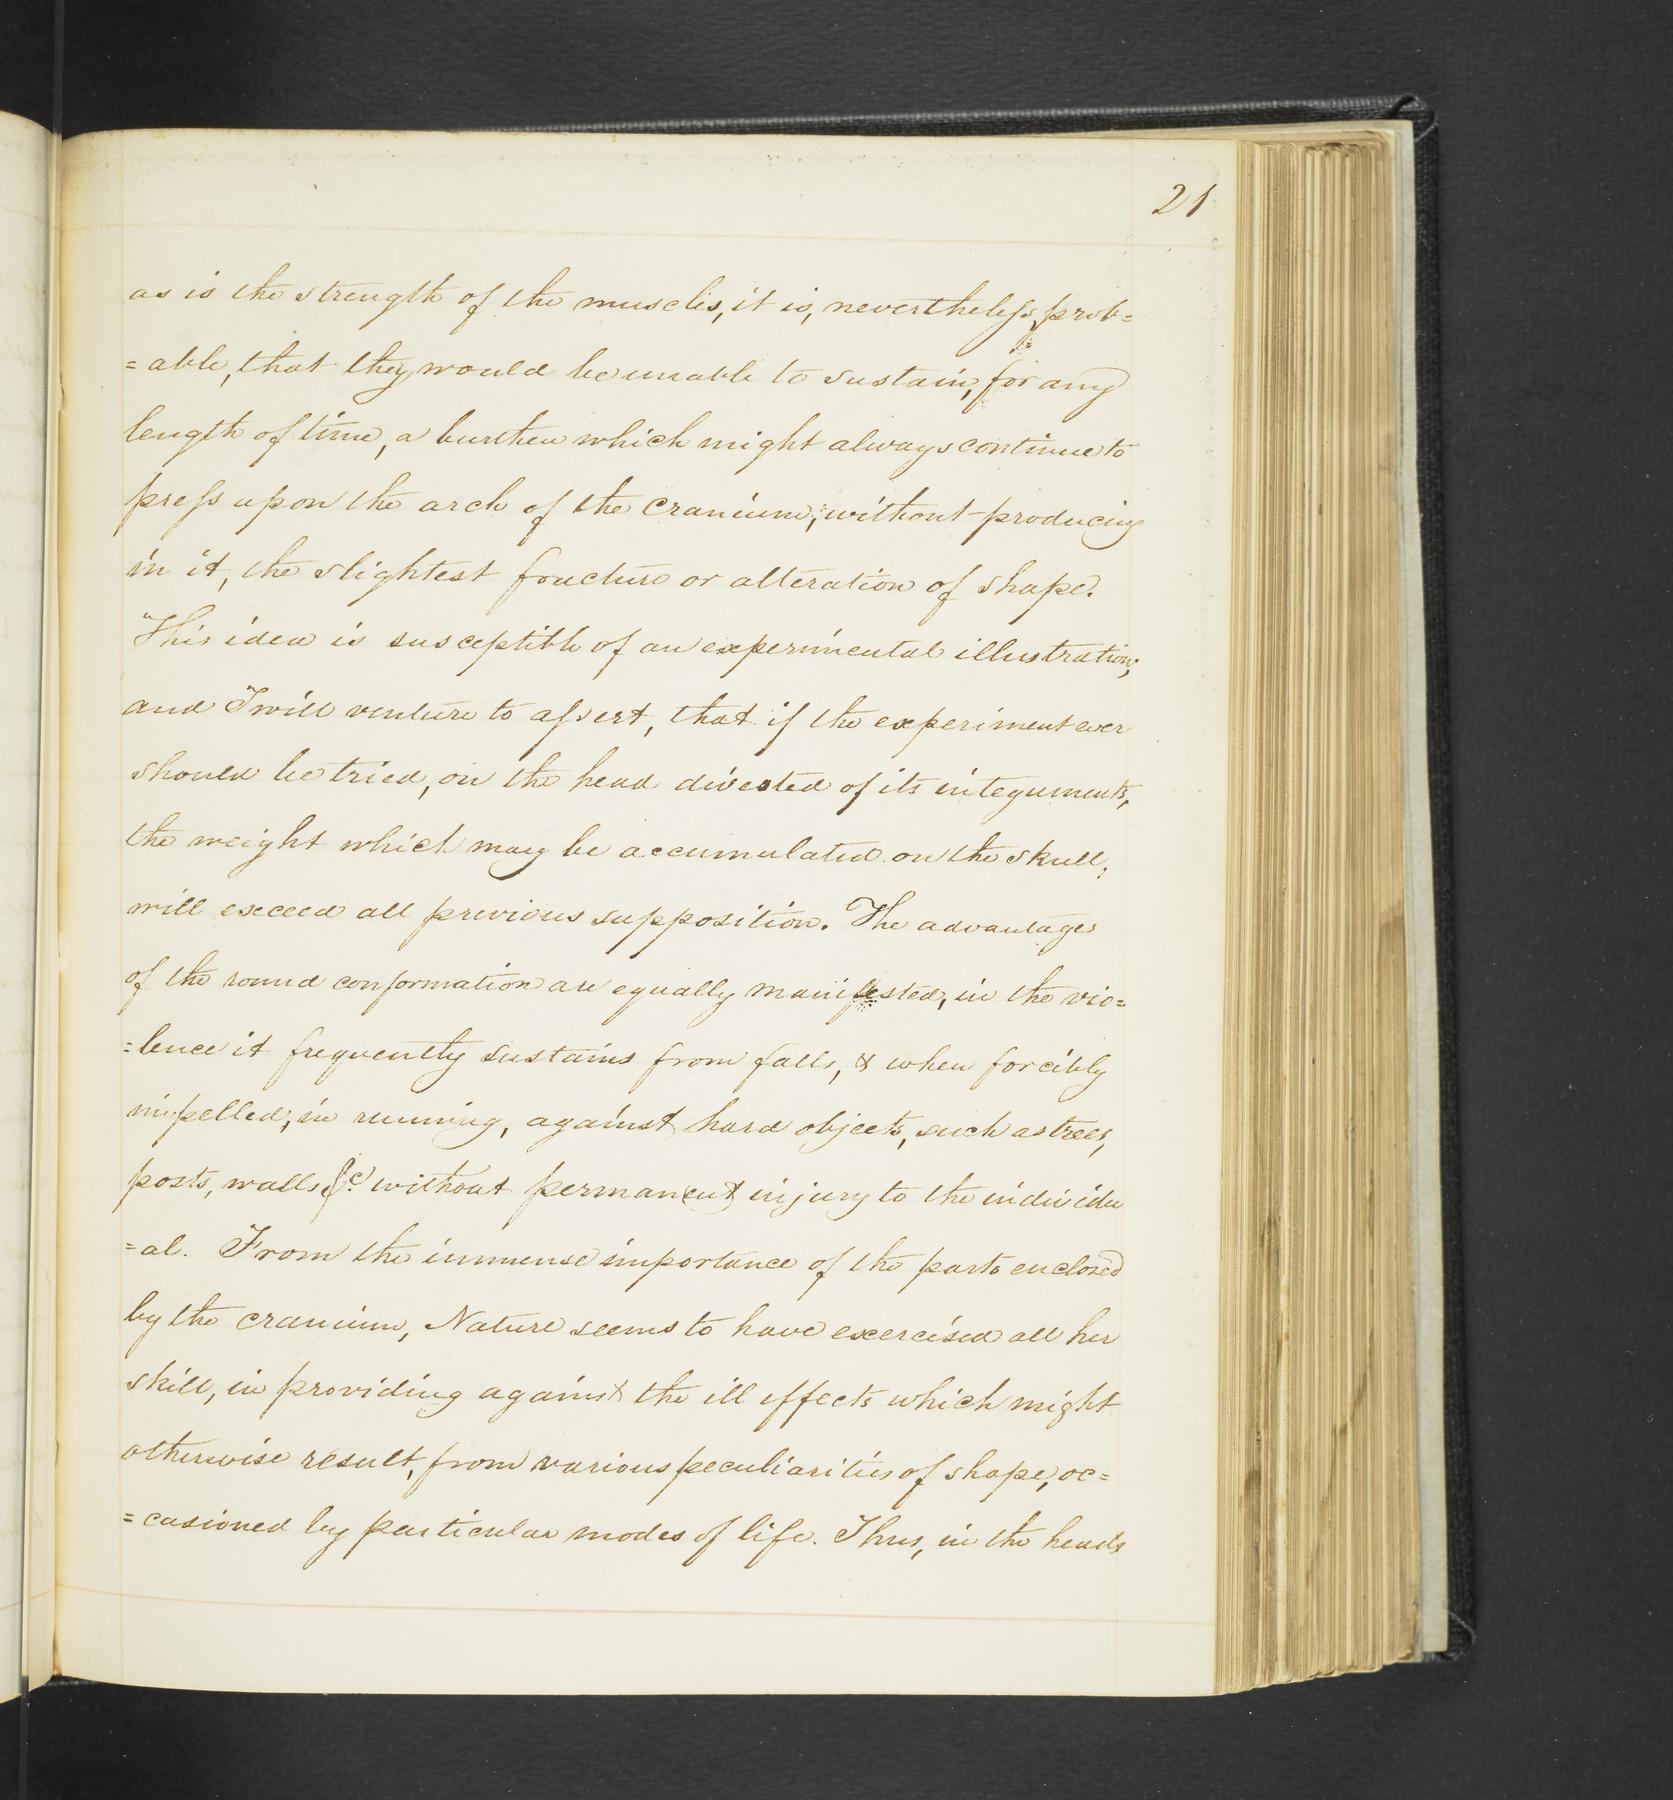 21
as is the strength of the muscles, it is, nevertheless, prob=
=able, that they would be unable to sustain, for any
length of time, a burthen which might always continue to
press upon the arch of the cranium, without producing
in it, the slightest fracture or alteration of shape.
This idea is susceptible of an experimental illustration;
and I will venture to assert, that if the experiment ever
should be tried, on the head divested of its integuments,
the weight which may be accumulated on the skull,
will exceed all previous supposition. The advantages
of the round conformation are equally manifested, in the vio=
=lence it frequently sustains from falls, & when forcibly
impelled, in running, against hard objects, such as trees,
posts, walls &c. without permanent injury to the individu
=al. From the immense importance of the parts enclosed
by the cranium, Nature seems to have exercised all her
skill, in providing against the ill effects which might
otherwise result, from various peculiarities of shape, oc=
=casioned by particular modes of life. Thus, in the heads